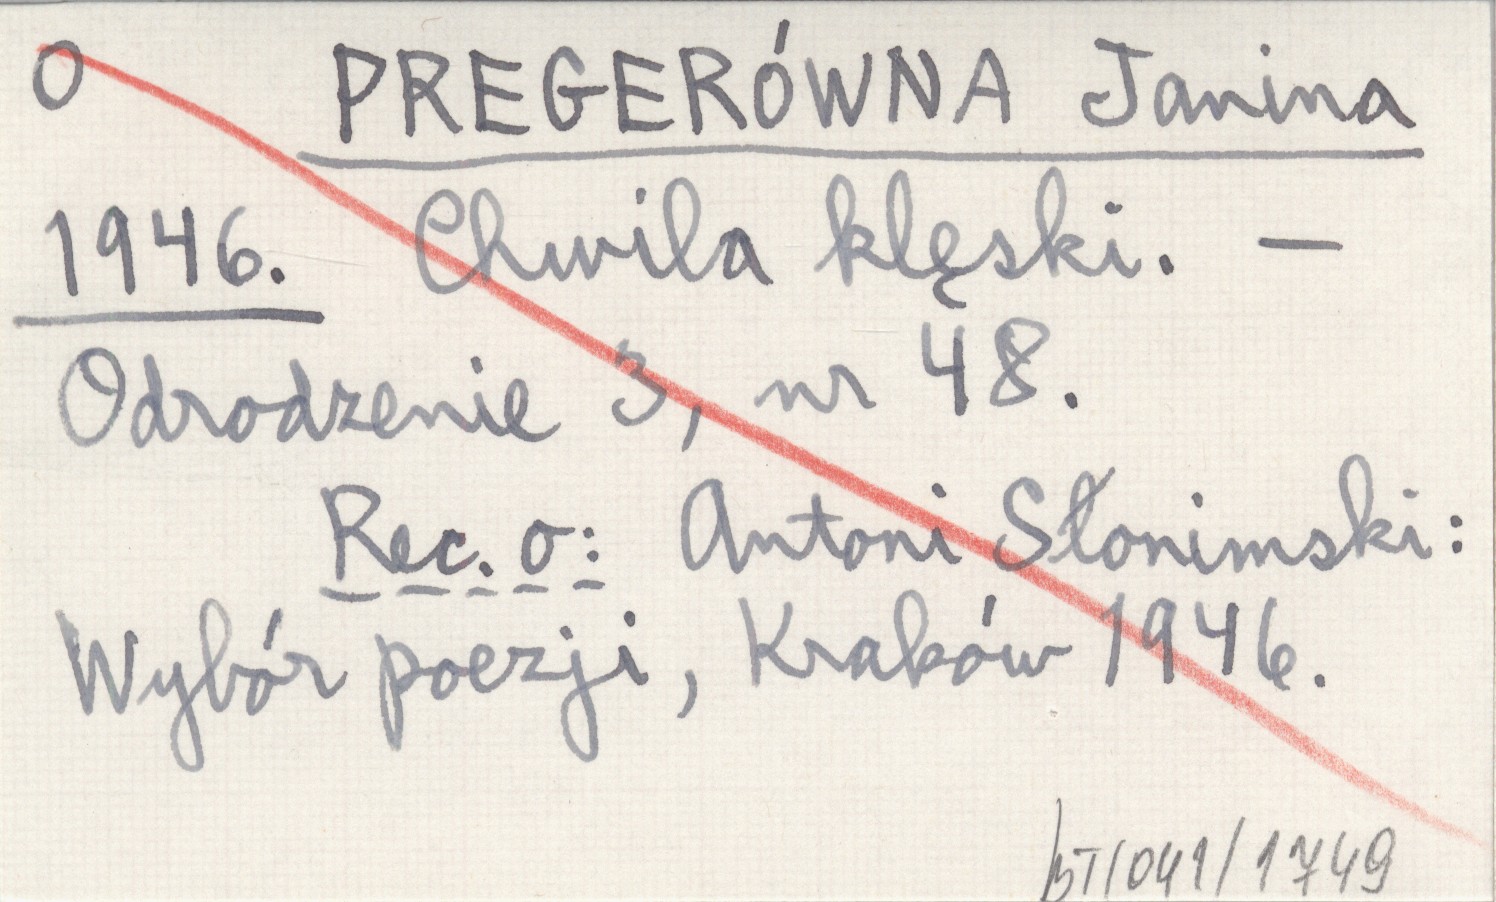 O PREGERÓWNA Janina
1946. Chwila klęski. —
Odrodzenie 3, nr 48.
Rec. o: Antoni Słonimski:
Wybór poezji, Kraków 1946.
BT/041/1749